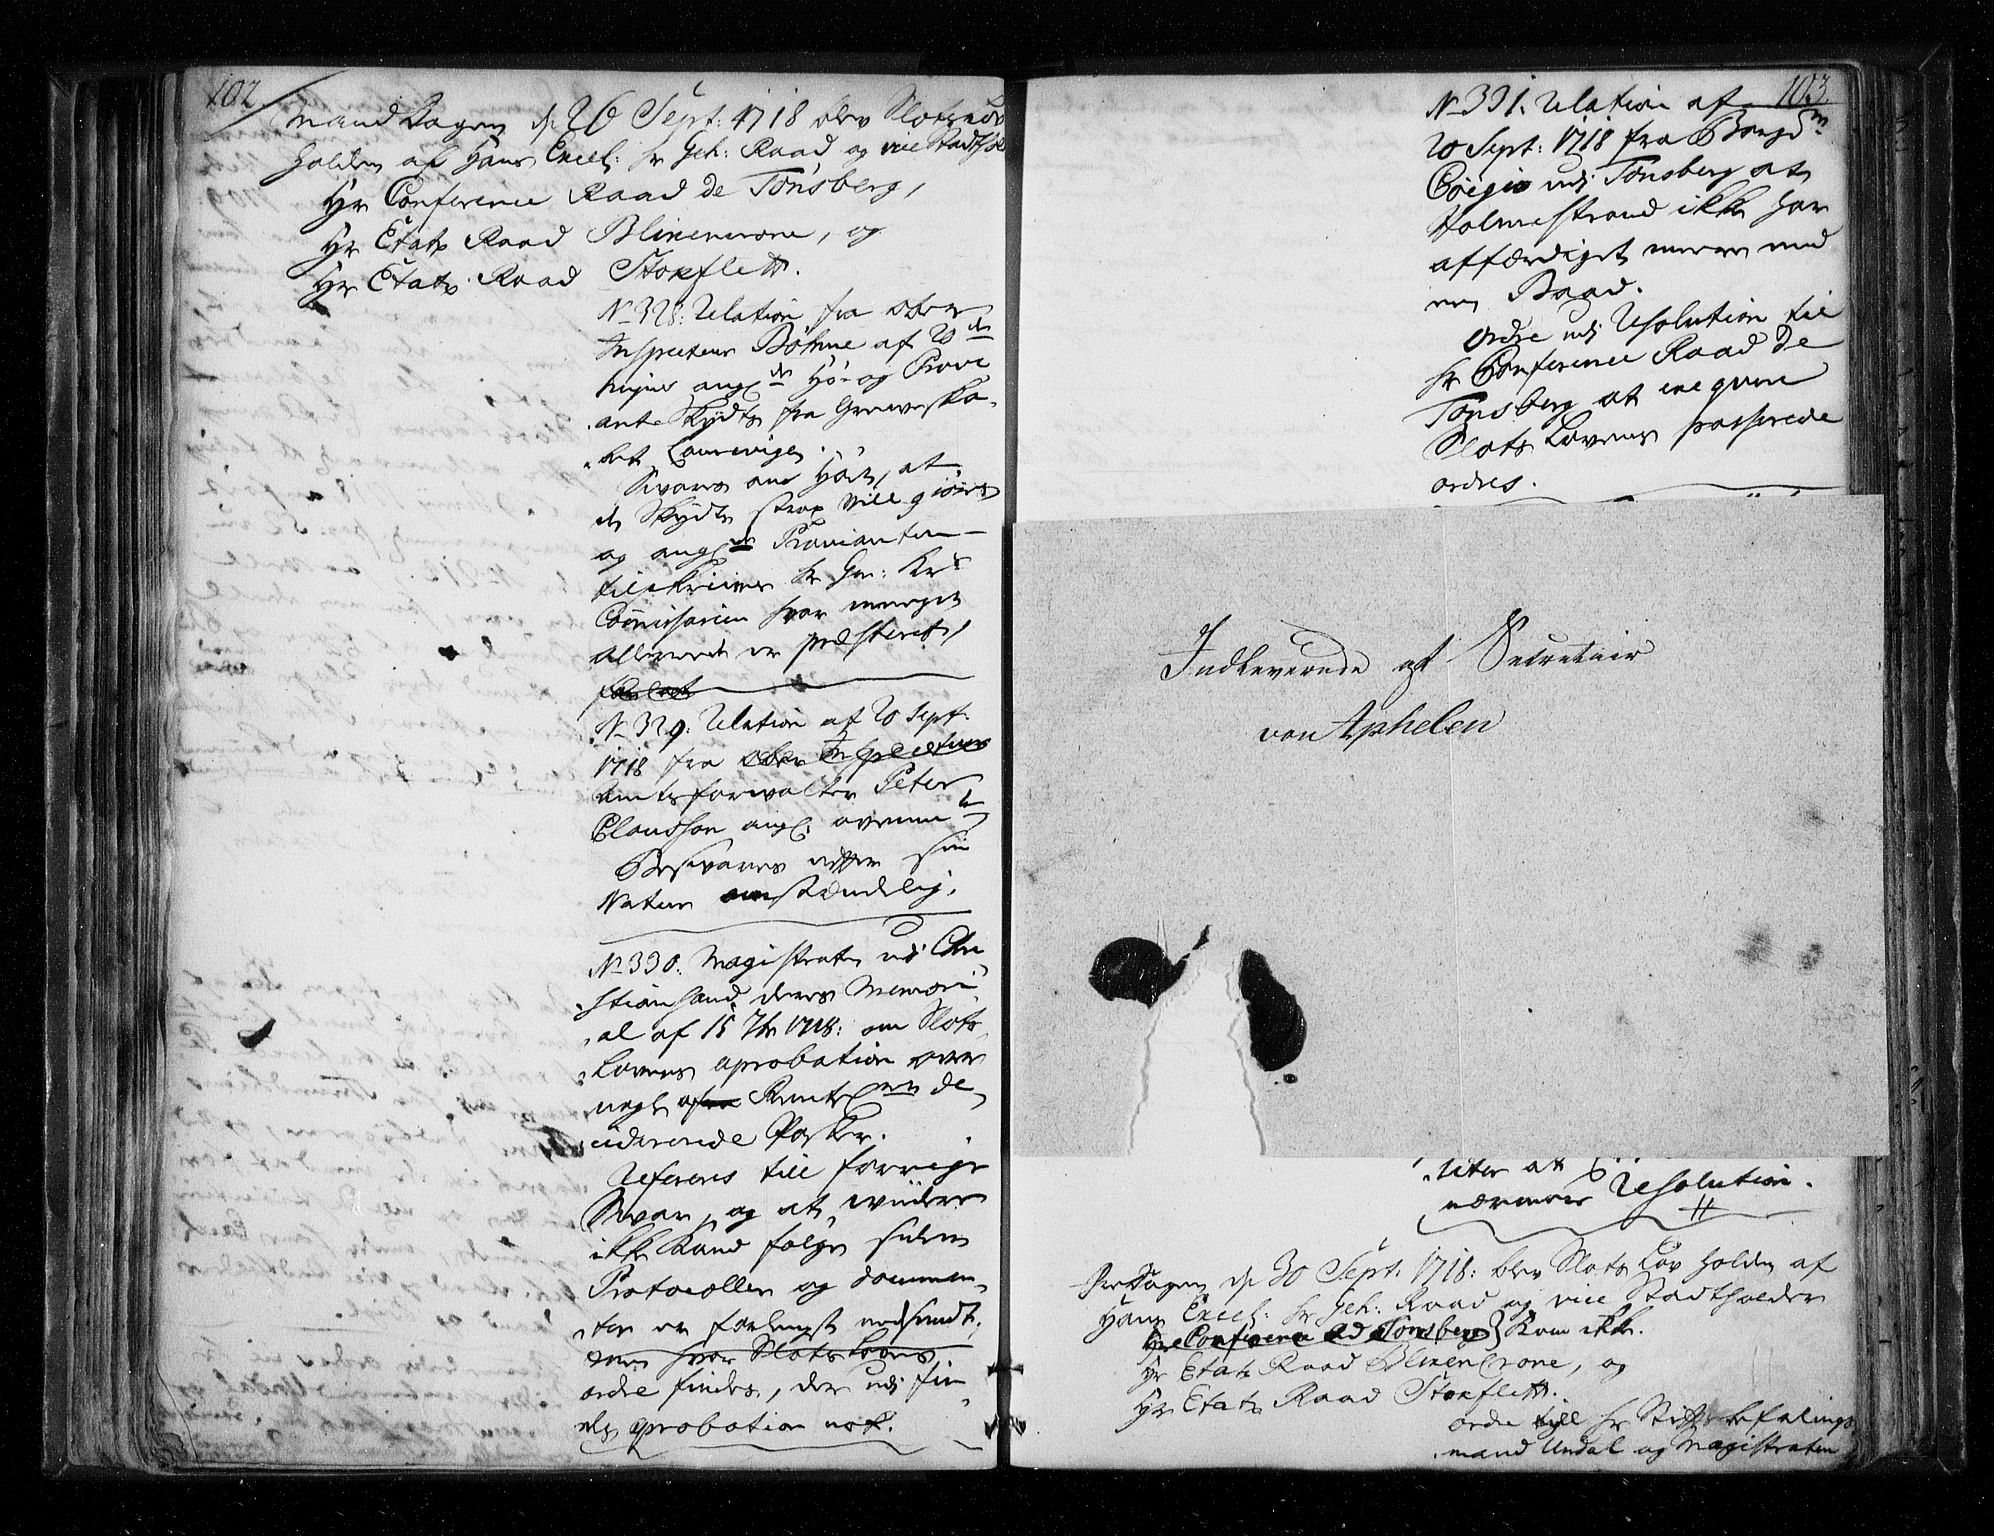 102.
Mand Dagen d. 26 Sept: 1718 blev Slotslov
holden af Hans Excell: Hr Geh: Raad og vice Stadthol
Hr Conference Raad de Tonsberg,
Hr Etats Raad Blixencrone, og
Hr Etats Raad Stoxfleth.
No 328: Relation fra ober
Inspecteur Böhme af 20
angl Hö- og Provi
ante Skyds fra Grevska-
bet Laurwigen.
Svares ans Höit, at
de Skyds strax vill giöres
og angl Provianten
tilskrives Hr Gen: Kr
Commissarien hvor meeget
allereede er præsteret,
No 329: Relation af 20 Sept.
1718 fra ober Inspecteur
Amtsforvalter Peter
Clausson angl.
Besvares efter sin
Natur omstændelig.
No 330: Magistraten udi Chri
stiansand deres Memori
al af 15 7br 1718: om Slots
Lovens aprobation over
de
ciderende Poster.
Refereres till forrige
Svar, og at viidere
ikke kand følge siden
Protocollen og Documen
ter er forlengst nedsendt,
hvor Slots Lovens
ordre findes, der udi sin
aprobation nok.
103.
No 331. Relation af
20 Sept: 1718 fra Borgem
Böeg udi Tonsberg at
Holmestrand ikke har
affærdiget meere end
een Baad.
Ordre udj Resolution til
Hr Conference Raad de
Tonsberg at exeqvere
Slots Lovens passerede
ordres.
Indleverede af Secretair
von Aphelen
at
nærmere Resolution.
Fredagen d. 30 Sept. 1718: blev Slots Lov holden af
Hans Excell: Hr Geh: Raad og vice Stadtholder
Hr Conference Rd Tonsberg} kom ikke.
Hr Etats Raad Blixencrone, og
Hr Etats Raad Stoxfleth.
Ordre till Hr Stiftbefalings
mand Undal og Magistraten